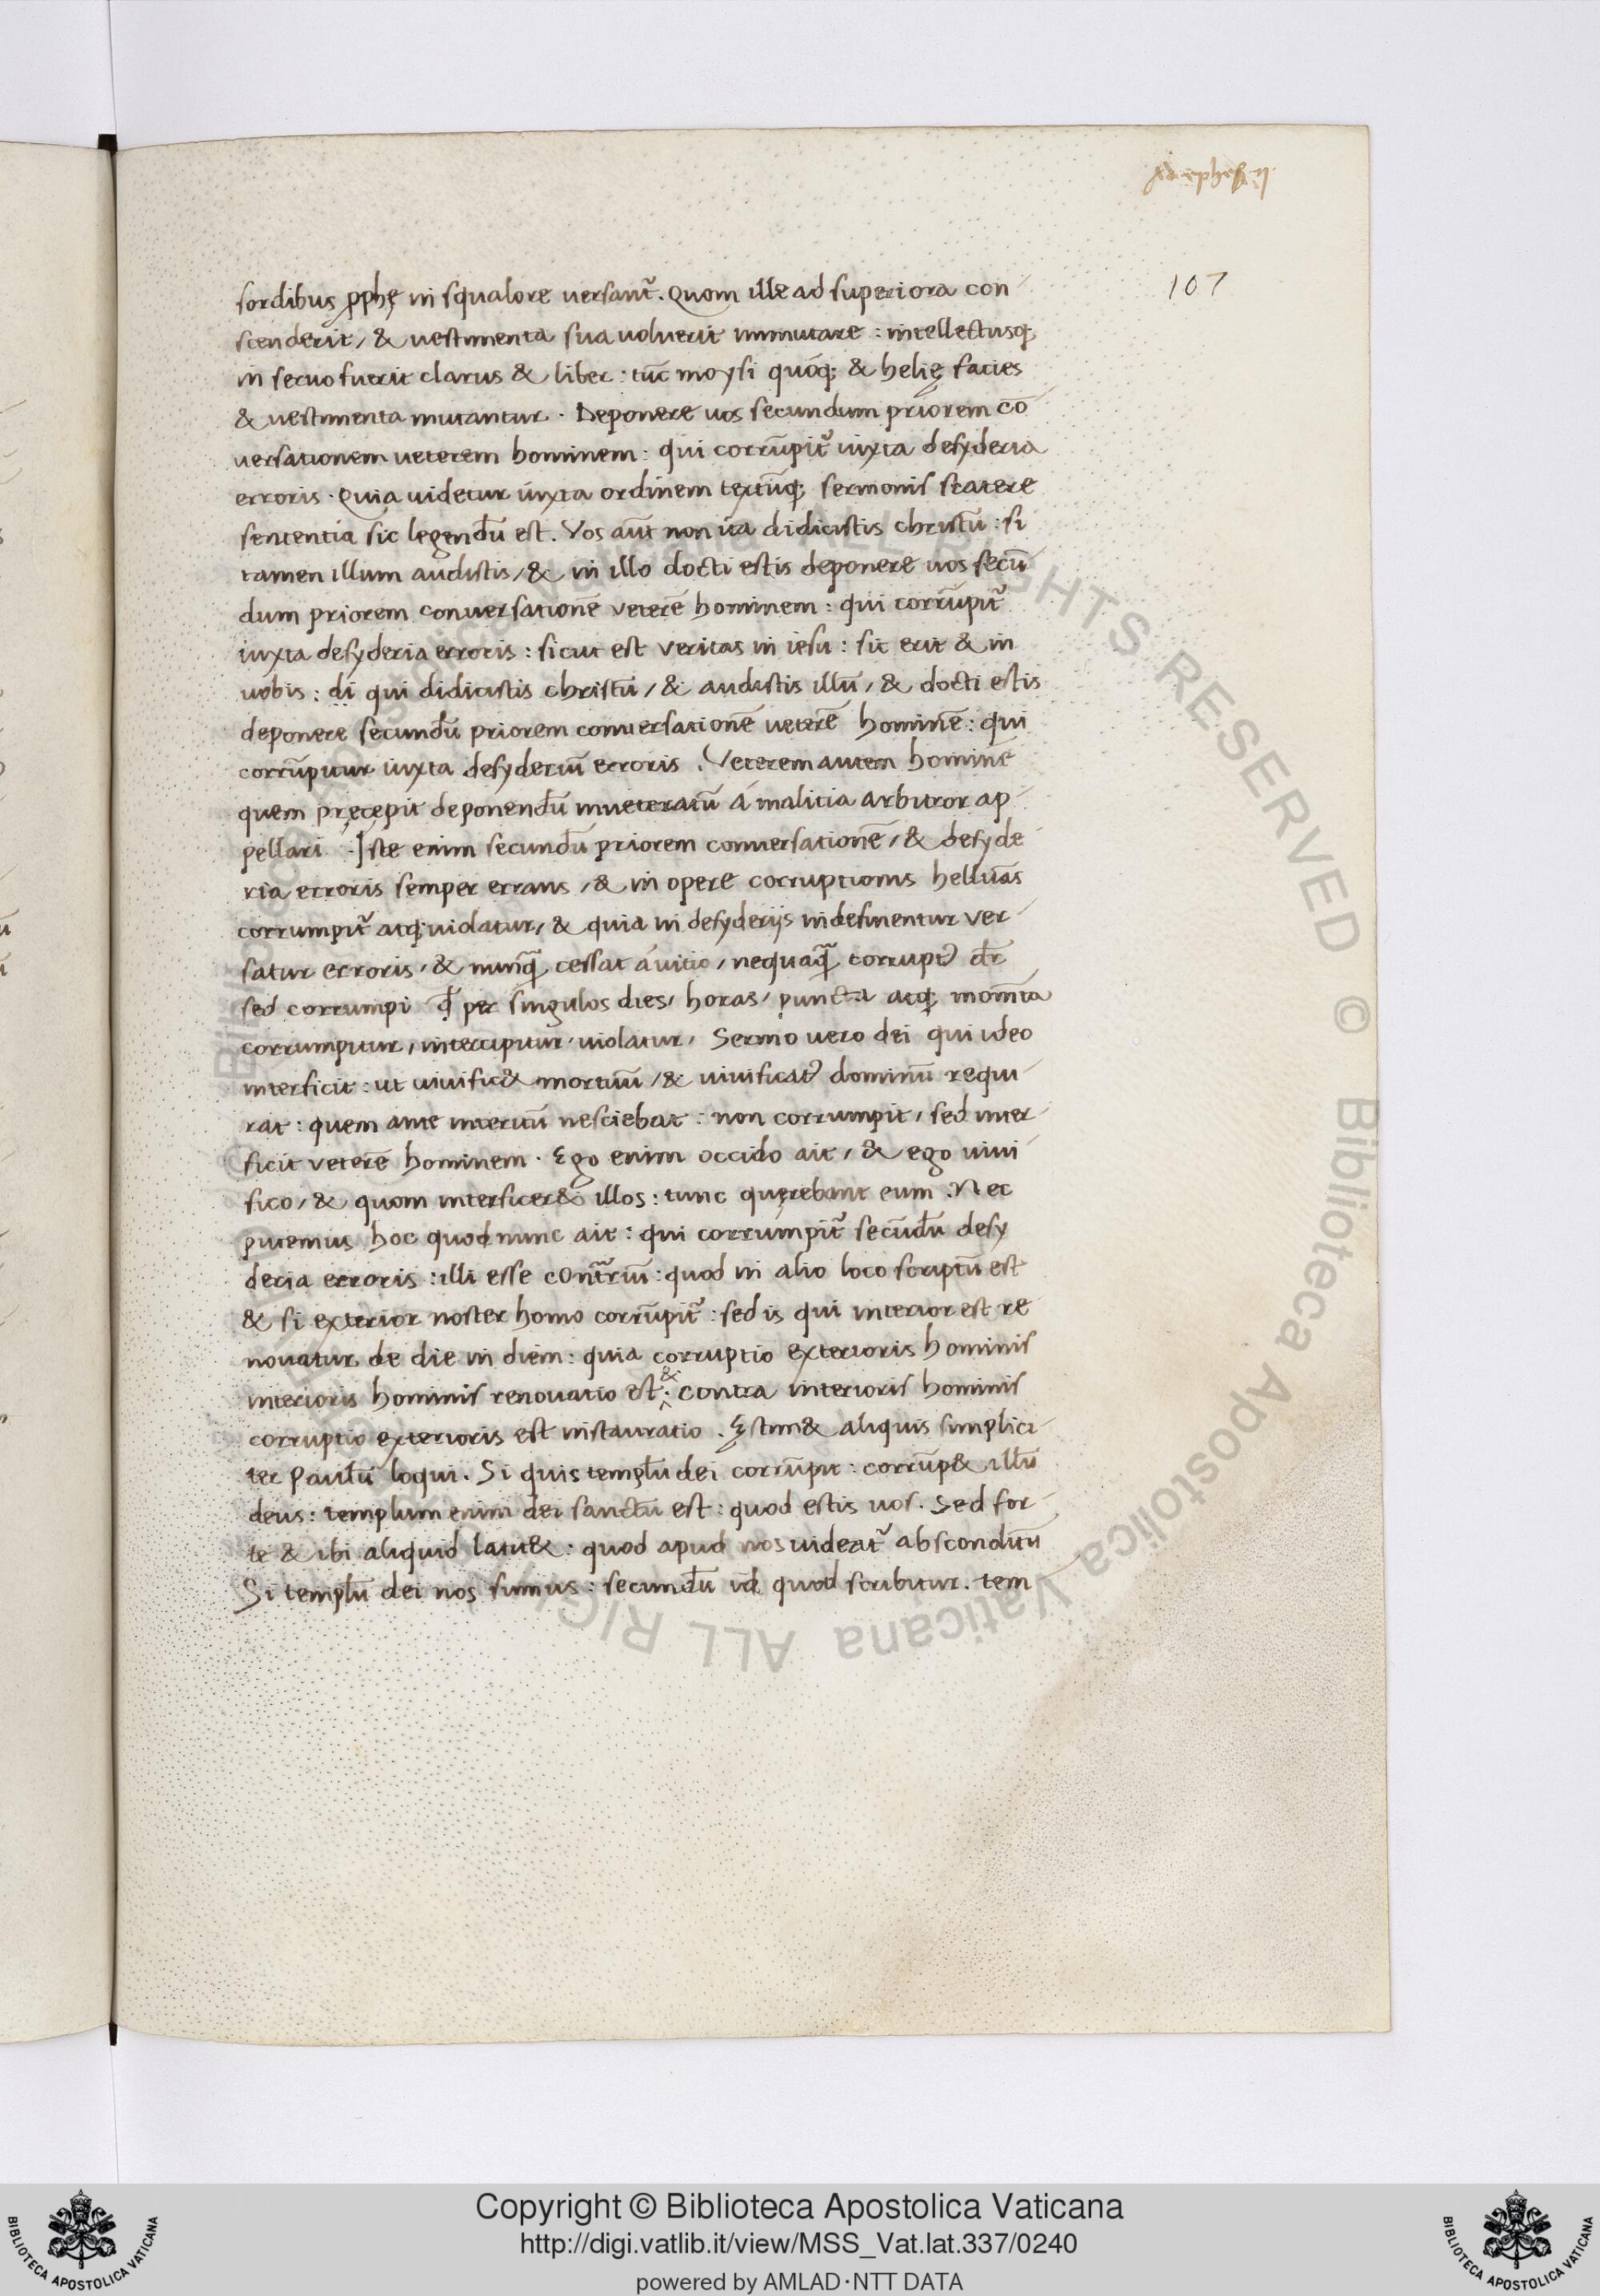 Ad ephes. ij.
107
sordibus ꝓphę in squalore uersant᷑. Quom ille ad superiora con
scenderit, & uestimenta sua uoluerit immutare : intellectusq;
in seruo fuerit clarus & liber : tūc moysi quoq; & helię facies
& uestimenta mutantur . Deponere uos secundum priorem cō
uersationem ueterem hominem : qui corrūpit᷑ iuxta desyderia
erroris . Quia uidetur iuxta ordinem textūq; sermonis scatere
sententia sic legendū est . Vos aūt non ita didicistis christū : si
tamen illum audistis, & in illo docti estis deponere uos secū
dum priorem conuersationē veterē hominem : qui corrūpit᷑
iuxta desyderia erroris : sicut est veritas in iesu : sit erit & in
uobis : di qui didicistis christū, & audistis illū, & docti estis
deponere secundū priorem conuersationē ueterē hominē : qui
corrūpitur iuxta desyderiū erroris . Veterem autem hominē
quem pręcepit deponendū inueteratū á malitia arbitror ap
pellari . Iste enim secundū priorem conuersationē, & desyde
ria erroris semper errans, & in opere corruptionis helluās
corrumpit᷑ atq; uiolatur, & quia in desyderijs indesinentur ver
satur erroris, & nunq̄ cessat á uitio, nequaq̄ corrupt᷑ dr̄
sed corrumpi q̄ per singulos dies, horas, puncta atq; momīta
corrumpitur, intercipitur, uiolatur, Sermo uero dei qui ideo
interficit : ut uiuific& mortuū, & uiuificat᷑ dominū requi
rat : quem ante interitū nesciebat : non corrumpit, sed inter
ficit veterē hominem . Ego enim occido ait, & ego uiui
fico, & quom interficer& illos : tunc quęrebant eum . Nec
putemus hoc quod nunc ait : qui corrumpit᷑ secūdū desy
deria erroris : illi esse contrariū : quod in alio loco scriptū est
& si exterior noster homo corrūpit᷑ : sed is qui interior est re
nouatur de die in diem : quia corruptio exterioris hominis
interioris hominis renouatio est : & contra interioris hominis
corruptio exterioris est instauratio . Ęstim& aliquis simplici
ter Paulū loqui . Si quis templū dei corrūpit : corrūp& illū
deus : templum enim dei sanctū est : quod estis uos . Sed for
te & ibi aliquid latu& : quod apud nos uideat᷑ absconditū
Si templū dei nos sumus : secundū id quod scribitur . tem
Copyright © Biblioteca Apostolica Vaticana
http://digi.vatlib.it/view/MSS_Vat.lat.337/0240
powered by AMLAD·NTT DATA